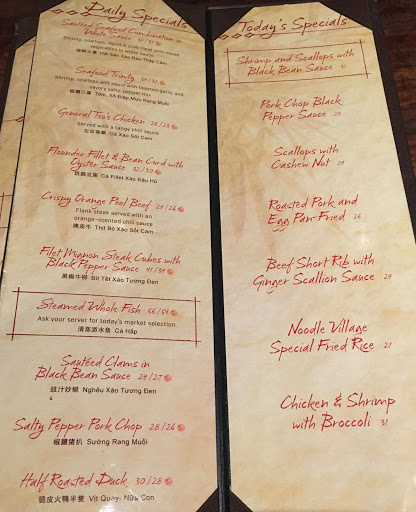 Daily Specials
Sautéed Seafood Combination in
White Sauce
Shrimp, scallops, squid & crab meat with mixed
vegetables in white sauce
Hải Sản Xào Rau Thập Cẩm
Seafood Trinity 34/32
Shrimp, scallops and squid with toasted garlic and
savory salty-pepper mix
椒鹽三寶 Tôm, Sò Điệp Mực Rang Muối
General Tso's Chicken 26/23
Served with a tangy chili sauce
左宗棠雞 Gà Xào Sốt Cam
Flounder Fillet & Bean Curd with
Oyster Sauce 32/30
斑腩豆腐 Cá Fillet Xào Đậu Hũ
Crispy Orange Peel Beef 29/26
Flank steak served with an
orange-scented chili sauce
陳皮牛 Thịt Bò Xào Sốt Cam
Filet Mignon Steak Cubes with
Black Pepper Sauce 41/39
黑椒牛柳 Bít Tết Xào Tương Đen
Steamed Whole Fish 56/54
Ask your server for today's market selection
清蒸游水魚 Cá Hấp
Sautéed Clams in
Black Bean Sauce 29/27
豉汁炒蜆 Nghêu Xào Tương Đen
Salty Pepper Pork Chop 28/26
椒鹽猪扒 Sường Rang Muối
Half Roasted Duck 30/28
脆皮火鴨半隻 Vịt Quay- Nữa Con
Today's Specials
Shrimp and Scallops with
Black Bean Sauce 41
Pork Chop Black
Pepper Sauce 29
Scallops with
Cashew Nut 29
Roasted Pork and
Egg Pan-Fried 26
Beef Short Rib with
Ginger Scallion Sauce 29
Noodle Village
Special Fried Rice 21
Chicken & Shrimp
with Broccoli 31